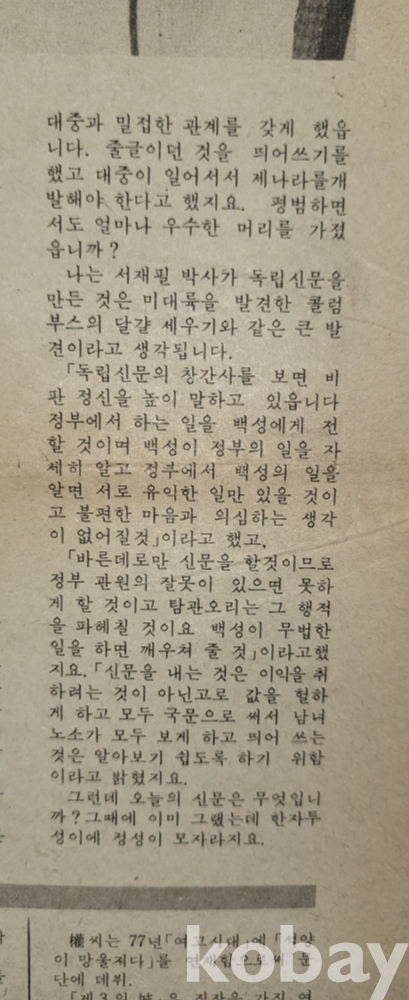 대중과 밀접한 관계를 갖게 했읍
니다. 줄글이던 것을 띄어쓰기를
했고 대중이 일어서서 제나라를개
발해야 한다고 했지요. 평범하면
서도 얼마나 우수한 머리를 가졌
읍니까?
나는 서재필 박사가 독립신문을
만든 것은 미대륙을 발견한 콜럼
부스의 달걀 세우기와 같은 큰 발
견이라고 생각됩니다.
「독립신문의 창간사를 보면 비
판 정신을 높이 말하고 있읍니다
정부에서 하는 일을 백성에게 전
할 것이며 백성이 정부의 일을 자
세히 알고 정부에서 백성의 일을
알면 서로 유익한 일만 있을 것이
고 불편한 마음과 의심하는 생각
이 없어질것」이라고 했고,
「바른데로만 신문을 할것이므로
정부 관원의 잘못이 있으면 못하
게 할 것이고 탐관오리는 그 행적
을 파헤칠 것이요 백성이 무법한
일을 하면 깨우쳐 줄 것」이라고했
지요.「신문을 내는 것은 이익을 취
하려는 것이 아닌고로 값을 헐하
게 하고 모두 국문으로 써서 남녀
노소가 모두 보게 하고 띄어 쓰는
것은 알아보기 쉽도록 하기 위함
이라고 밝혔지요.
그런데 오늘의 신문은 무엇입니
까?그때에 이미 그랬는데 한자투
성이에 정성이 모자라지요.
權씨는 77년「여고시대」에「석양
이 망울지다」를 연재함으로써 문
단에 데뷔.
「제3의 城」은 직장을 가진 여
kobay